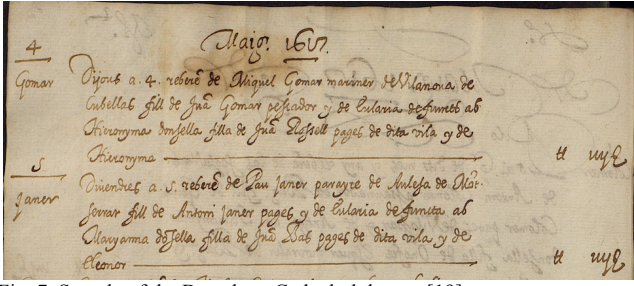 Maig. 1617.
4
Gomar
Dijous a. 4. rebere de Miquel Gomar mariner de Vilanova de
Cubellas fill de Juā Gomar pescador y de Eularia defuncts ab
Hieronyma donsella filla de Juā Rossell pages de dita vila y de
Hieronyma
5
Janer
Divendres a. 5. rebere de Pau Janer parayre de Aulesa de Mōt-
serrat fill de Antoni Janer pages y de Eularia defuncta ab
Maryanna dōsella filla de Juā Bas pages de dita vila y de
Eleonor